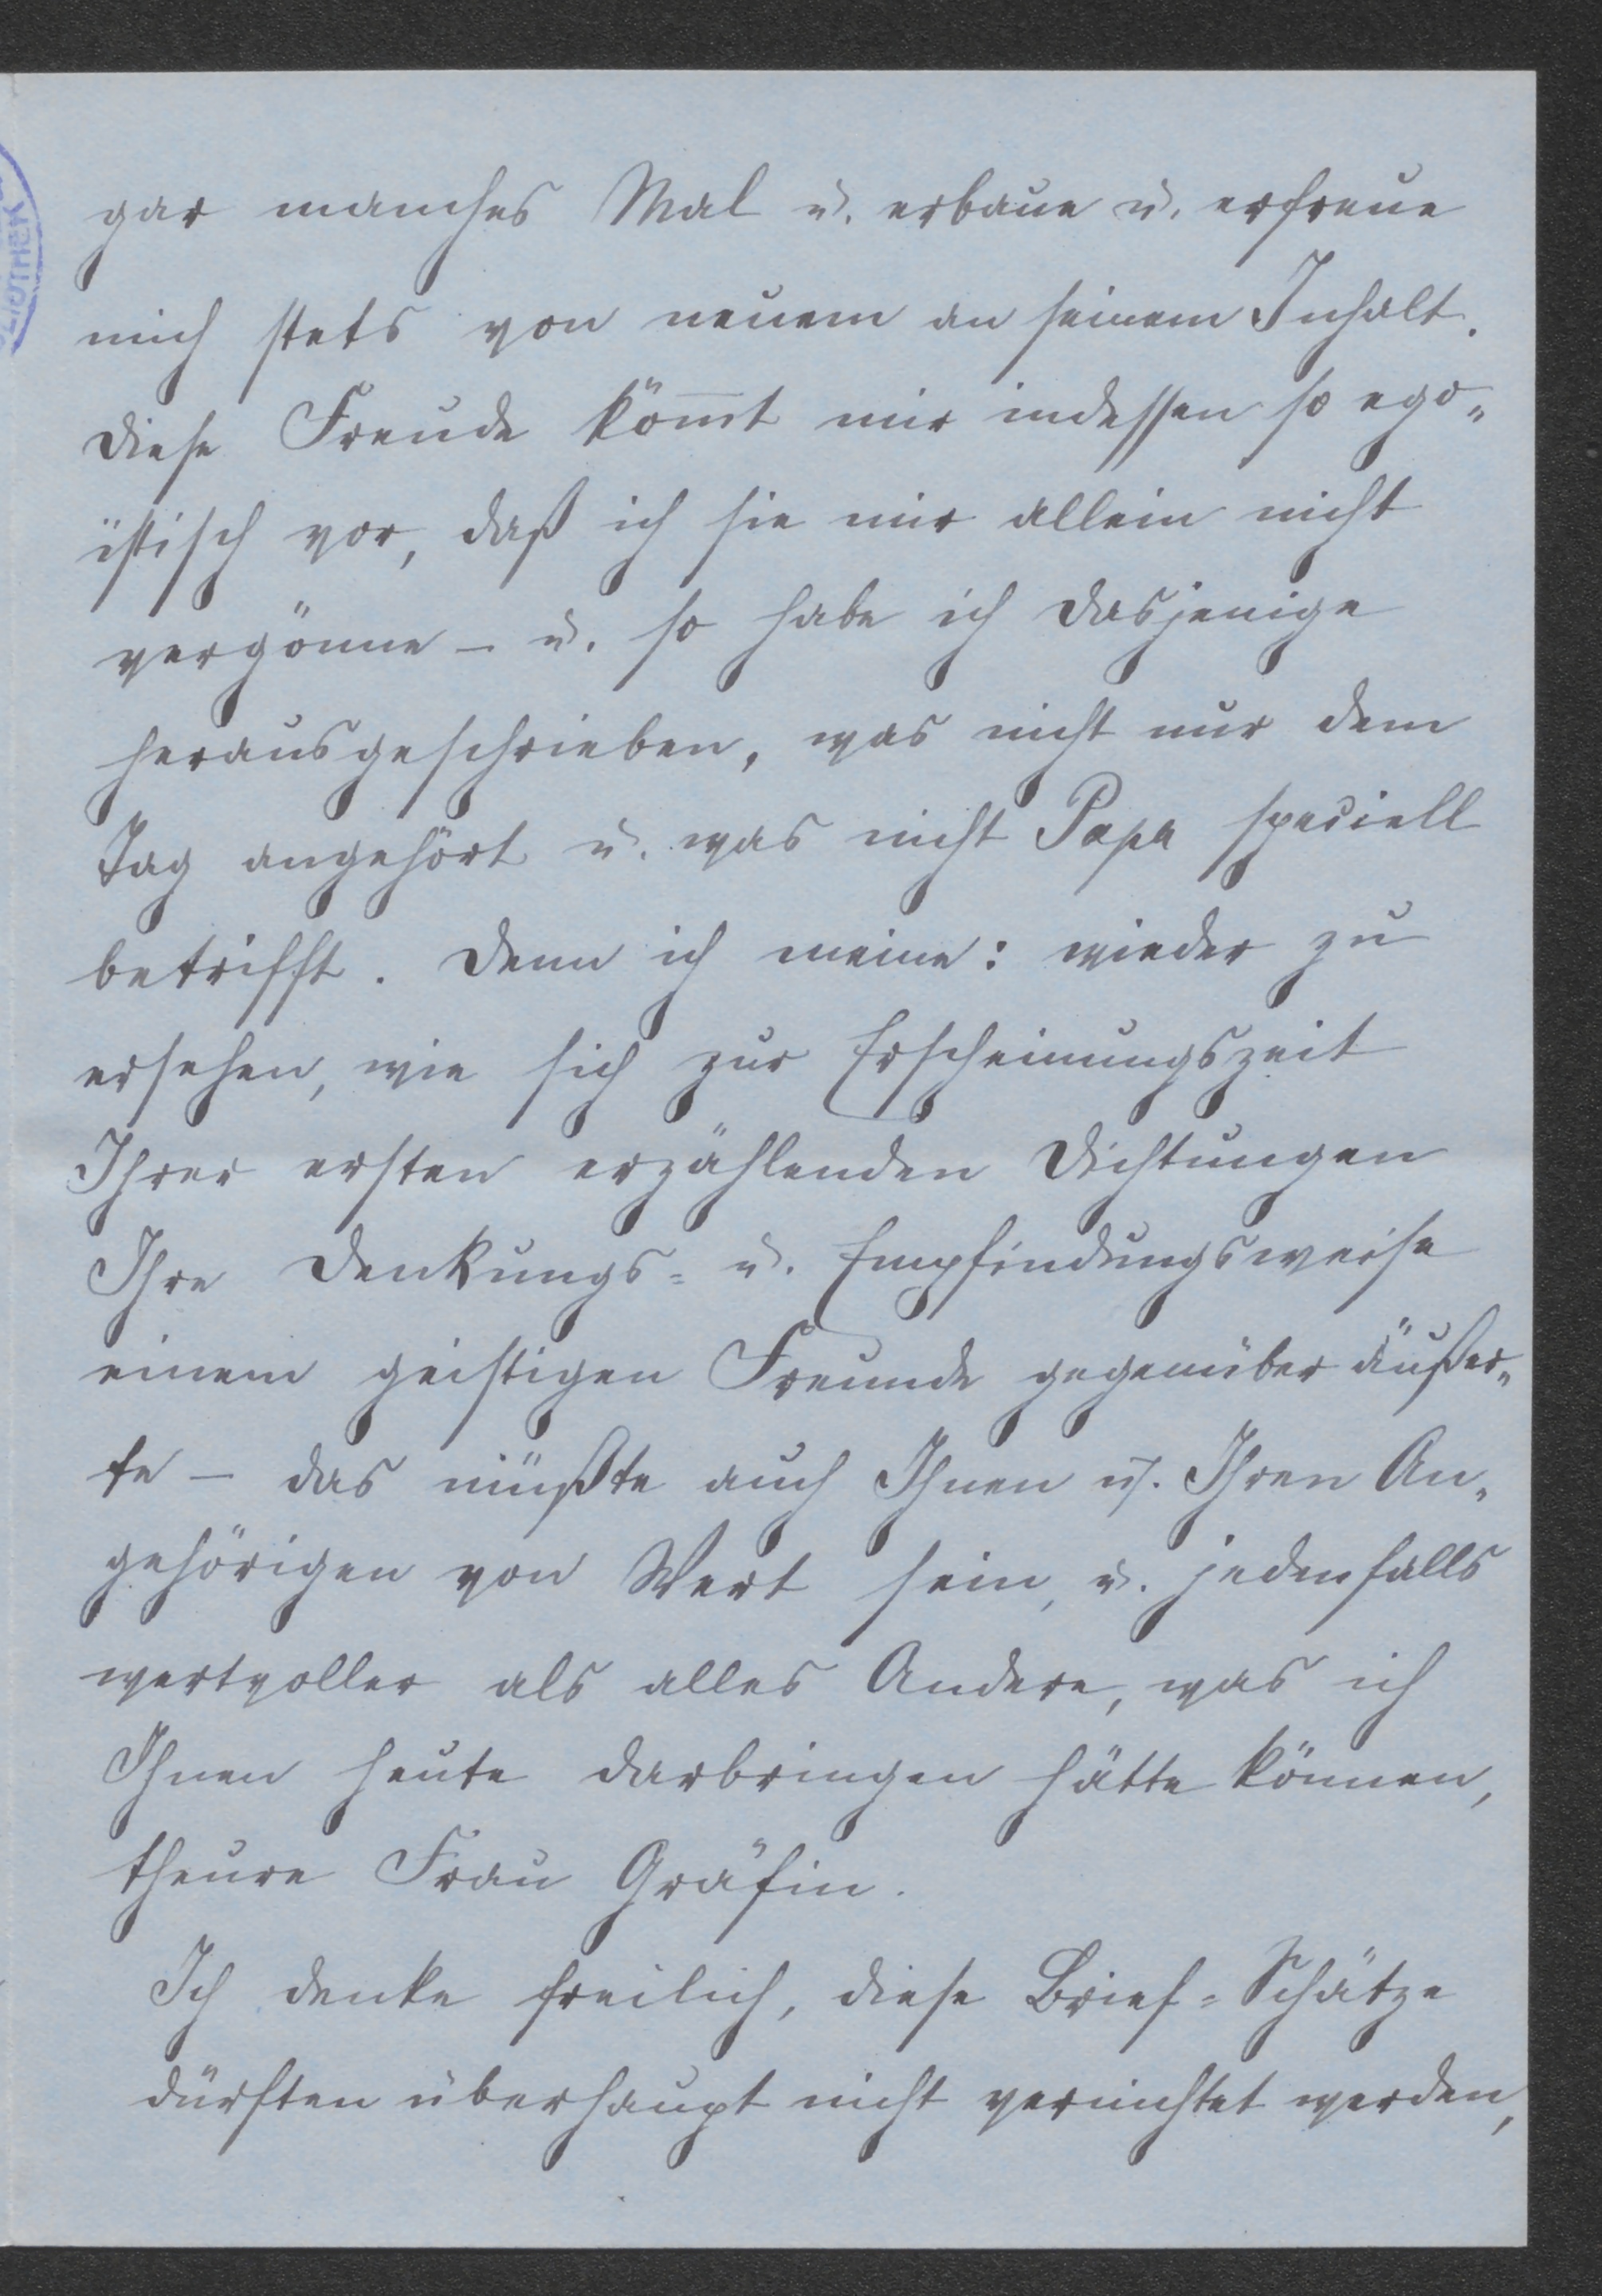 gar manches Mal u. erbaue u. erfreue
mich stets von neuem an seinem Inhalt.
Diese Freude kömmt mir indessen so ego-
istisch vor, daß ich sie mir allein nicht
vergönne – u. so habe ich dasjenige
herausgeschrieben, was nicht nur dem
Tag angehört u. was nicht Papa speciell
betrifft. Denn ich meine: wieder zu
ersehen, wie sich zur Erscheinungszeit
Ihrer ersten erzählenden Dichtungen
Ihre Denkungs- u. Empfindungsweise
einem geistigen Freunde gegenüber äußer-
te – das müßte auch Ihnen u. Ihren An-
gehörigen von Wert sein, u. jedenfalls
wertvoller als alles Andere, was ich
Ihnen heute darbringen hätte können,
theure Frau Gräfin.
Ich denke freilich, diese Brief-Schätze
dürften überhaupt nicht vernichtet werden,